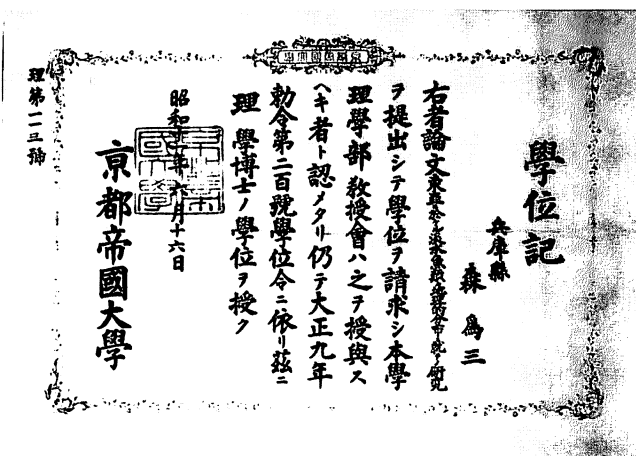 學位記
兵庫縣
森爲三
右者論文東亞ニ於ケル淡水魚類ノ地理的分布ニ就テノ研究
ヲ提出シテ學位ヲ請求シ本學
理學部教授會ハ之ヲ授與ス
ヘキ者ト認メタリ仍テ大正九年
勅令第二百號學位令ニ依リ茲ニ
理學博士ノ學位ヲ授ク
昭和 年六月十六日
京都帝國大學
理第一一三號